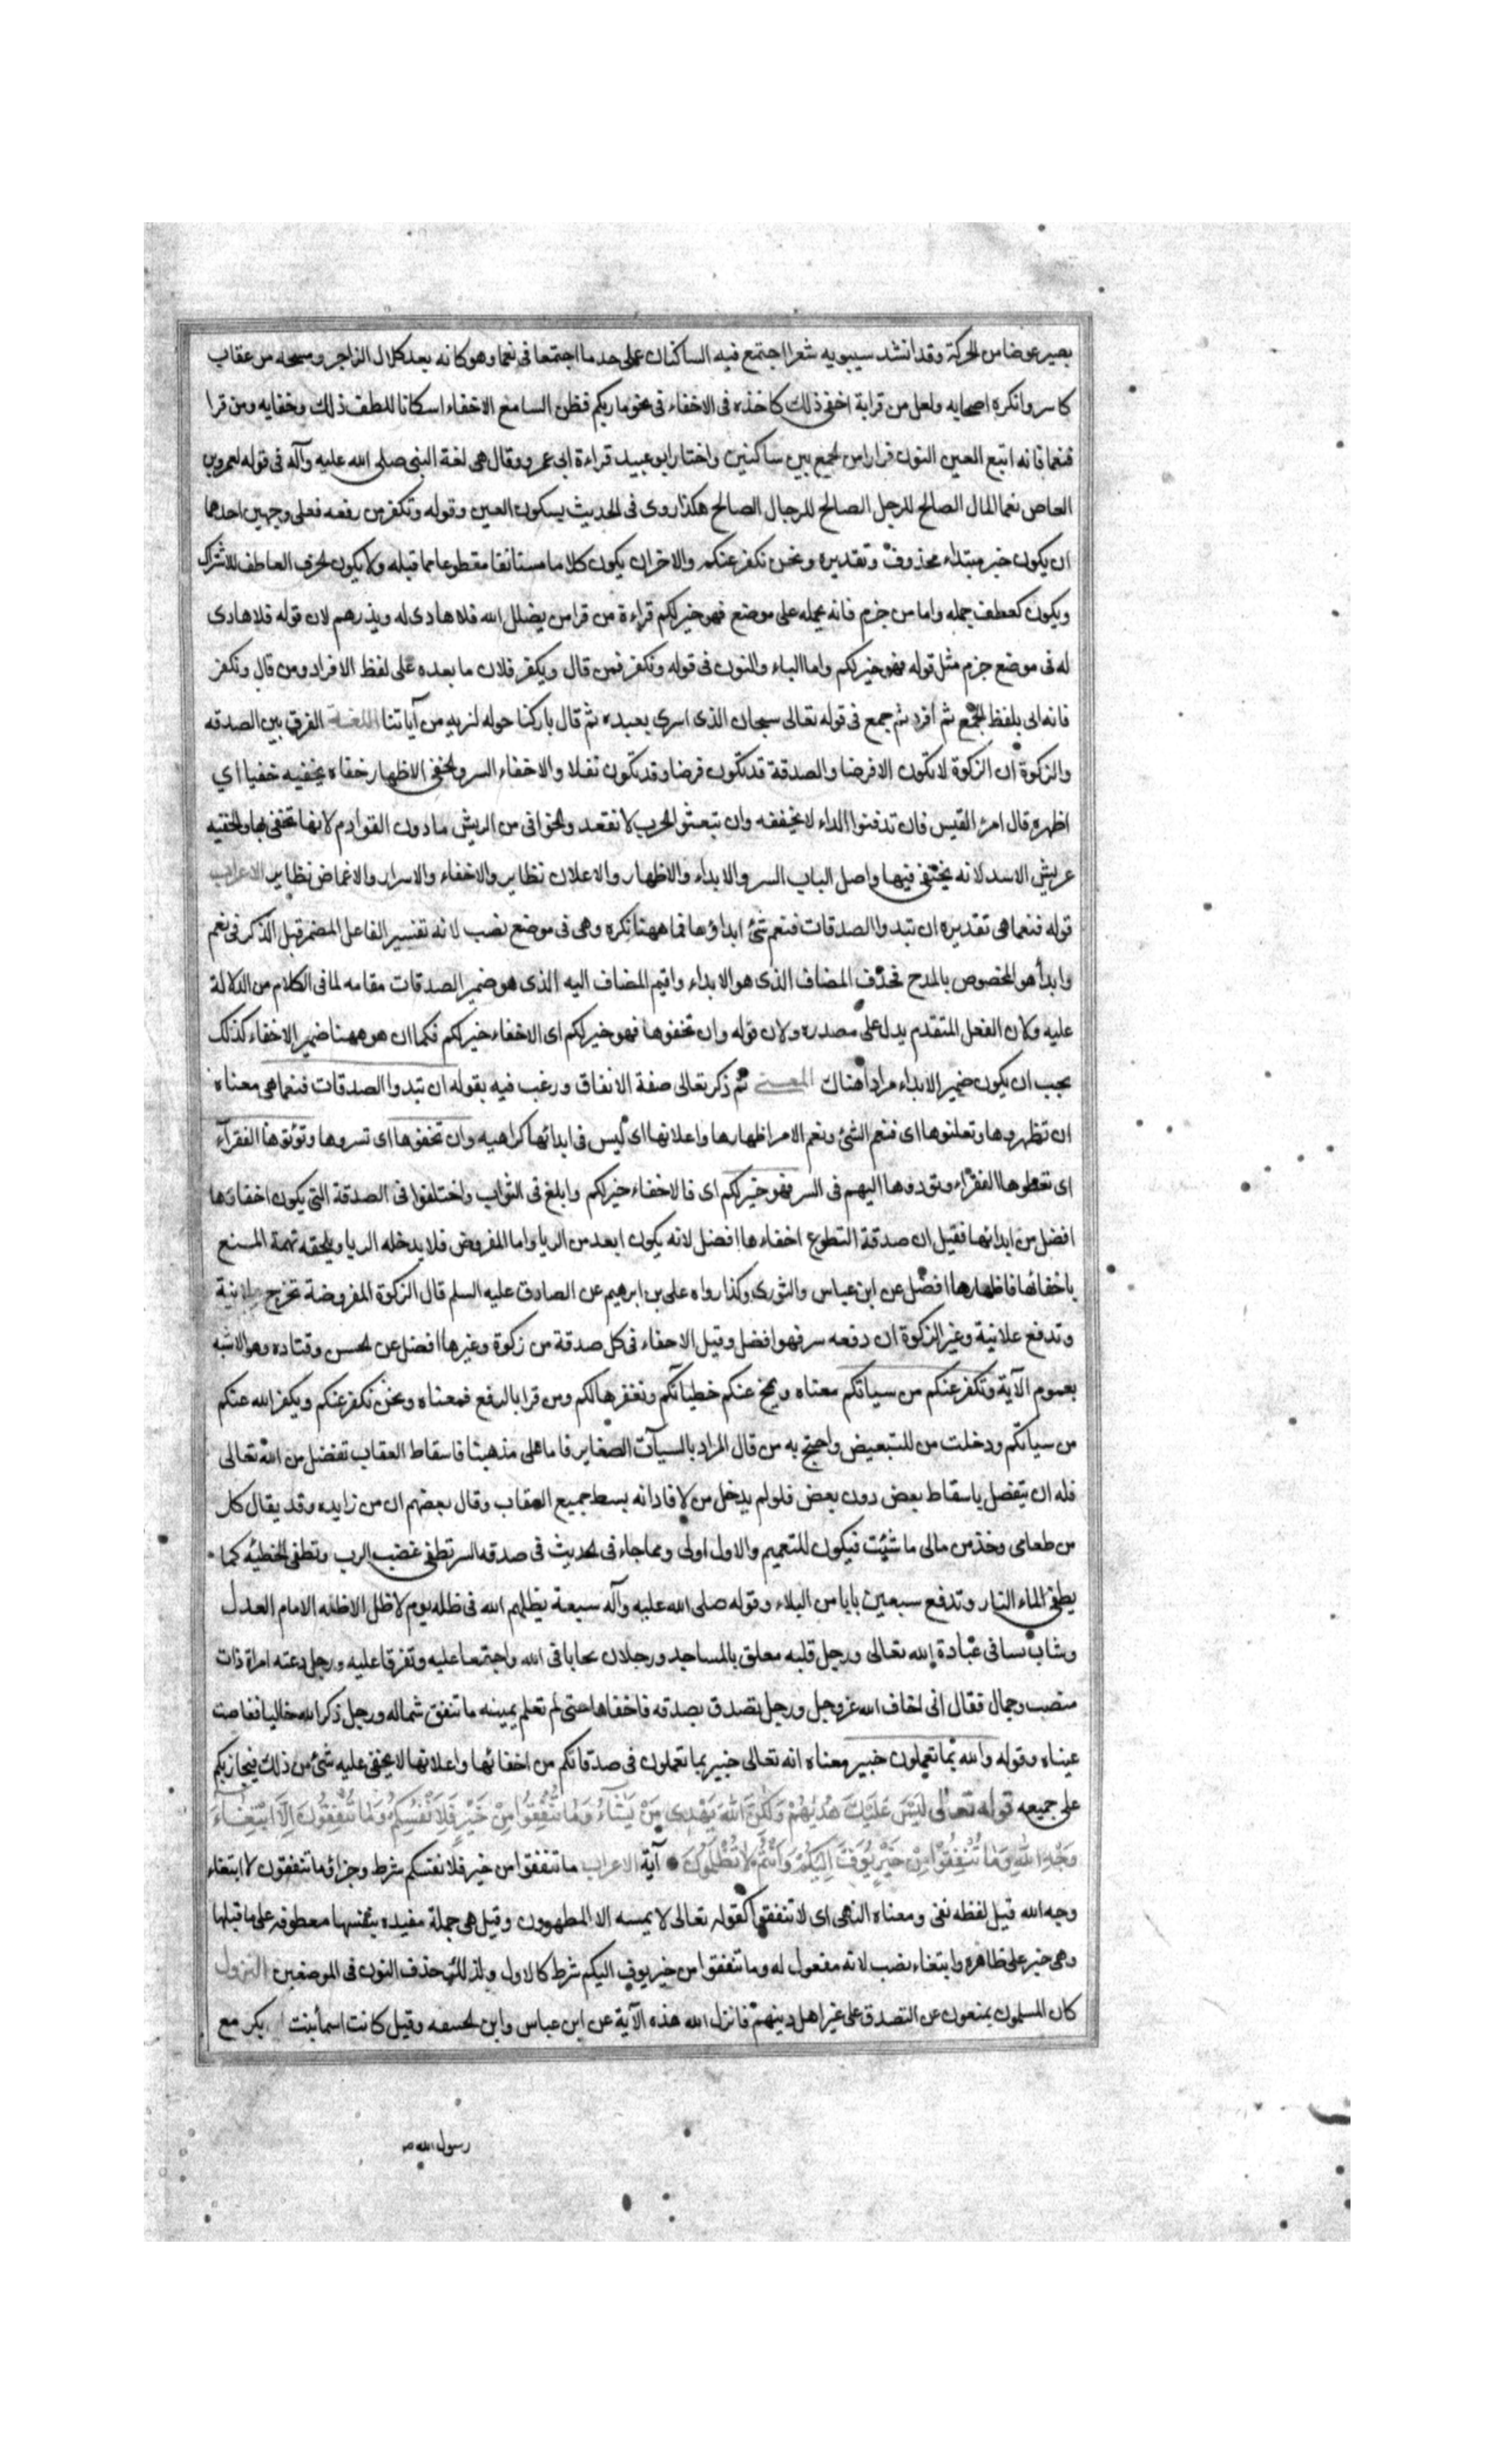 يصير عوضا من الحركة وقد انشد سيبويه شعرا اجتمع فيه الساكنان على حد ما اجتمعا في نعما وهو كانه بعد كلال الزاجر ومسحه مر عقاب
كاسر وانكره اصحابه ولعل من قرا به اخفى ذلك كاخذه في الاخفاء في نحو بارئكم فظن السامع الاخفاء اسكانا للطف ذلك وخفايه ومن قرا
فنعما فانه اتبع العين النون فرارا من الجمع بين ساكنين واختار ابو عبيد قراءة ابى عمرو وقال هى لغة النبى صلى الله عليه وآله في قوله لعمرو بن
العاص نعما المال الصالح للرجل الصالح للرجال الصالح هكذا روى في الحديث بسكون العين وقوله وتكفر من رفعه فعلى وجهين احدهما
ان يكون خبر مبتداء محذوف وتقديره ونحن نكفر عنكم والاخر ان يكون كلاما مستانفا مقطوعا مما قبله ولا يكون لحرف العاطف للاشراك
ويكون كعطف جمله واما من جزم فانه يحمله على موضع فهو خير لكم قراءة من قرا من يضلل الله فلا هادى له ويذرهم لان قوله فلا هادى
له في موضع جزم مثل قوله فهو خير لكم واما الياء والنون في قوله ونكفر فمن قال ويكفر فلان ما بعده على لفظ الافراد ومن قال ونكفر
فانه اتى بلفظ الجمع ثم أفرد ثم جمع في قوله تعالى سبحان الذى اسرى بعبده ثم قال باركنا حوله لنريه من آياتنا اللغة الفرق بين الصدقه
والزكوة ان الزكوة لا تكون الا فرضا والصدقة قد تكون فرضا وقد تكون نفلا والاخفاء السر والخفى الاظهار خفاه يخفيه خفيا اي
اظهره قال امرئ القيس فان تدفنوا الداء لا نخففه وان تبعثوا الحرب لا نقعد والخوافى من الريش ما دون القوادم لانها تخفى بها والخفيه
عريش الاسد لانه يختفى فيها واصل الباب السر والابداء والاظهار والاعلان نظاير والاخفاء والاسرار والاغماض نظاير الاعراب
قوله فنعما هى تقديره ان تبدوا الصدقات فنعم شئ ابداؤها فما ههنا نكره وهى في موضع نصب لانه تفسير الفاعل المضمر قبل الذكر في نعم
وابدأ هو المخصوص بالمدح فحذف المضاف الذى هو الابداء واقيم المضاف اليه الذى هو ضمير الصدقات مقامه لما في الكلام من الدلالة
عليه ولان الفعل المتقدم يدل على مصدره ولان قوله وان تخفوها فهو خير لكم اى الاخفاء خير لكم فكما ان هو ههنا ضمير الاخفاء كذلك
يجب ان يكون ضمير الابداء مرادا هناك المعنى ثم ذكر تعالى صفة الانفاق ورغب فيه بقوله ان تبدوا الصدقات فنعما هى معناه
ان تظهروها وتعلنوها اى فنعم الشئ ونعم الامر اظهارها واعلانها اى ليس في ابدائها كراهيه وان تخفوها اى تسروها وتؤتوها الفقرآء
اى تعطوها الفقراء وتؤدوها اليهم في السر فهو خير لكم اى فالاخفاء خير لكم وابلغ في الثواب واختلفوا في الصدقة التى يكون اخفاؤها
افضل من ابدائها فقيل ان صدقة التطوع اخفاءها افضل لانه يكون ابعد من الريا واما المفروض فلا يدخله الريا ويلحقه تهمة المنع
باخفائها فاظهارها افضل عن ابن عباس والثورى وكذا رواه على بن ابرهيم عن الصادق عليه السلم قال الزكوة المفروضة تخرج علانية
وتدفع علانية وغير الزكوة ان دفعه سر فهو افضل وقيل الاخفاء في كل صدقة من زكوة وغيرها افضل عن الحسن وقتاده وهو الاشبه
بعموم الآية ونكفر عنكم من سياتكم معناه ونمح عنكم خطياتكم ونغفرها لكم ومن قرا بالرفع فمعناه ونحن نكفر عنكم ويكفر الله عنكم
من سياتكم ودخلت من للتبعيض واحتج به من قال المراد بالسيآت الصغاير فاما على مذهبنا فاسقاط العقاب تفضل من الله تعالى
فله ان يتفضل باسقاط بعض دون بعض فلو لم يدخل من لافاد انه يسقط جميع العقاب وقال بعضهم ان من زايده وقد يقال كل
من طعامى وخذ من مالى ما شئت فيكون للتعميم والاول اولى ومما جاء في الحديث في صدقه السر تطفى غضب الرب وتطفى الخطيئه كما
يطفى الماء النار وتدفع سبعين بابا من البلاء وقوله صلى الله عليه وآله سبعة يظلهم الله في ظله يوم لا ظل الا ظله الامام العدل
وشاب نشا في عبادة الله تعالى ورجل قلبه معلق بالمساجد ورجلان تحابا في الله واجتمعا عليه وتفرقا عليه ورجل دعته امراة ذات
منصب وجمال فقال انى اخاف الله عز وجل ورجل تصدق بصدقه فاخفاها حتى لم تعلم يمينه ما تنفق شماله ورجل ذكر الله خاليا ففاضت
عيناه وقوله والله بما تعملون خبير معناه انه تعالى خبير بما تعملون في صدقاتكم من اخفائها واعلانها لا يخفى عليه شئ من ذلك فيجازيكم
على جميعه قوله تعالى لَيْسَ عَلَيْكَ هُدٰيهُمْ وَلٰكِنَّ اللهَ يَهْدِى مَنْ يَشَآءُ وَمَا تُنْفِقُوا مِنْ خَيْرٍ فَلِاَنْفُسِكُمْ وَمَا تُنْفِقُونَ اِلَّا ابْتِغَآءَ
وَجْهِ اللهِ وَمَا تُنْفِقُوا مِنْ خَيْرٍ يُوَفَّ اِلَيْكُمْ وَاَنْتُمْ لَا تُظْلَمُونَ آية الاعراب ما تنفقوا من خير فلانفسكم شرط وجزاؤ وما تنفقون الا ابتغاء
وجه الله قيل لفظه نفى ومعناه النهى اى لا تنفقوا كقوله تعالى لا يمسه الا المطهرون وقيل هى جملة مفيده بنفسها معطوفه على ما قبلها
وهى خبر على ظاهره وابتغاء نصب لانه مفعول له وما تنفقوا من خير يوف اليكم شرط كالاول ولذلك حذف النون في الموضعين النزول
كان المسلمون يمنعون عن التصدق على غير اهل دينهم فانزل الله هذه الآية عن ابن عباس وابن الحنفيه وقيل كانت اسما بنت ابى بكر مع
رسول الله ص